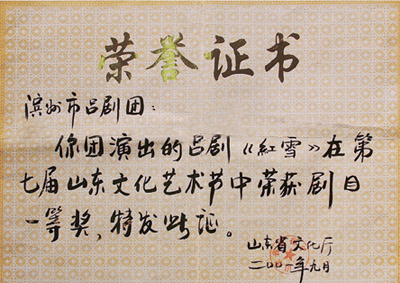 荣誉证书
滨州市吕剧团：
你团演出的吕剧《紅雪》在第
七届山东文化艺术节中荣获剧目
一等奖，特发此证。
山东省文化厅
二〇〇一年九月